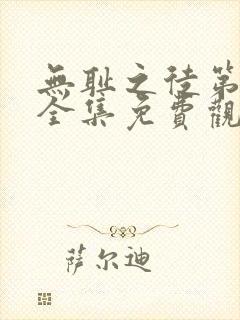 無耻之徒第
全集免費觀
萨尔迪